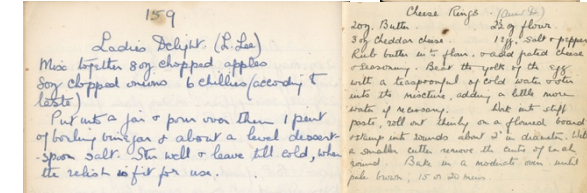 159
Ladies Delight (L. Lee)
Mix together 8oz chopped apples
8oz chopped onions 6 chillies (according to
taste)
Put into a jar & pour over them 1 pint
of boiling vinegar & about a level dessert-
spoon salt. Stir well & leave till cold, when
the relish is fit for use.
Cheese Rings
2oz. Butter. 2½oz flour
3oz cheddar cheese. salt & pepper
Rub butter into flour, add grated cheese
& seasoning. Beat the yolk of the egg
with a teaspoonful of cold water & stir
into the mixture, adding a little more
water if necessary. Work into stiff
paste, roll out thinly on a floured board
& stamp into rounds about 2" in diameter. With
a smaller cutter remove the centre of each
round. Bake in a moderate oven until
pale brown, 15 or 20 mins.